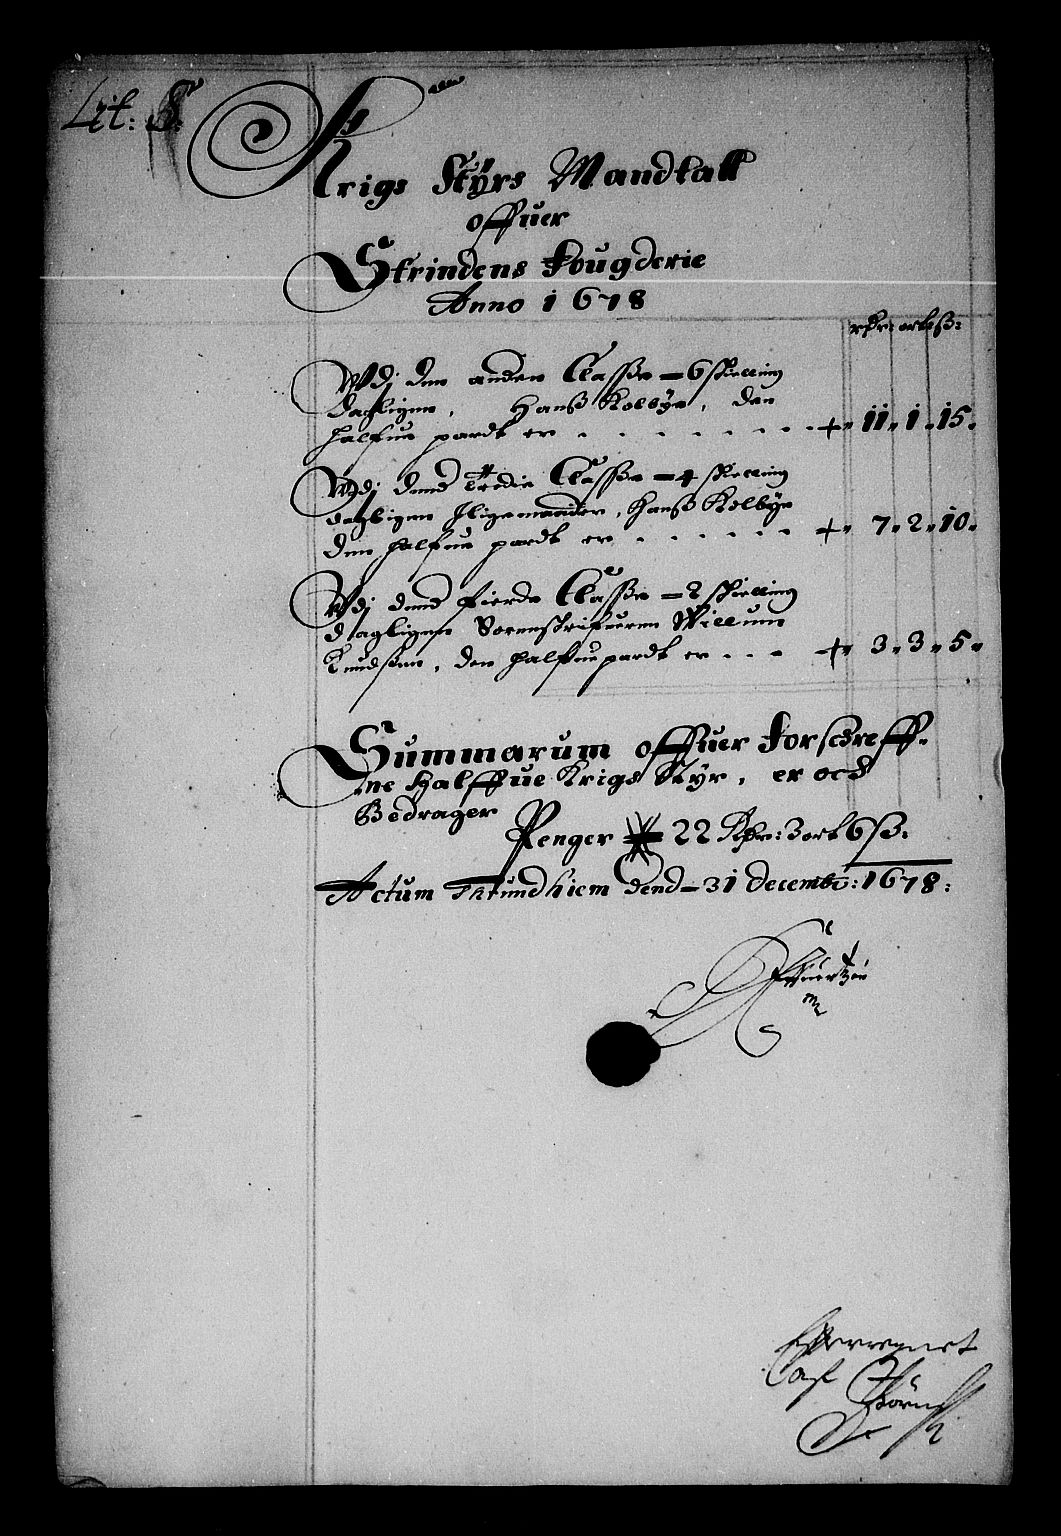 Lit: S:
Krigs Styrs Mandtall
offuer
Strindens Fougderie
Anno 1678
rdr: ort ß:
Udj den anden Classe – 6 skelling
dagligen, Hanß Kolbye, den
halfue pardt er . . . . . . . . + „ 11 „ 1 „ 15 „
Udj dend tredie Classe – 4 skelling
dagligen Iligemaader, Hanß Kolbye
den halfue pardt er . . . . . . + „ 7 „ 2 „ 10 „
Udj dend fierde Classe – 2 skelling
dagligen Sorenskrifueren Willum
Knudsen, den halfue pardt er . . . + „ 3 „ 3 „ 5 „
Summarum offuer forscreff-
ne Halffue Krigs Styr, er och
Bedrager
Penger 22 Rdr: 3 ort 6 ß:
Actum Thrundhiem dend – 31 decemb: 1678:
Efterregnet
af